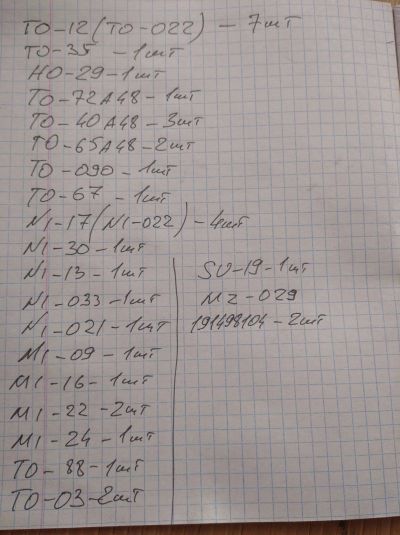 TO-12(TO-022) - 7шт
TO-35 - 1шт
HO-29-1шт
TO-72A48-1шт
TO-40A48-3шт
TO-65A48-2шт
TO-090-1шт
TO-67 - 1шт
NI-17(NI-022) - 4шт
NI-30-1шт
NI-13-1шт
NI-033-1шт
NI-021-1шт
MI-09-1шт
MI-16-1шт
MI-22-2шт
MI-24-1шт
TO-88-1шт
TO-03-2шт
SU-19-1шт
MZ-029
191498104-2шт